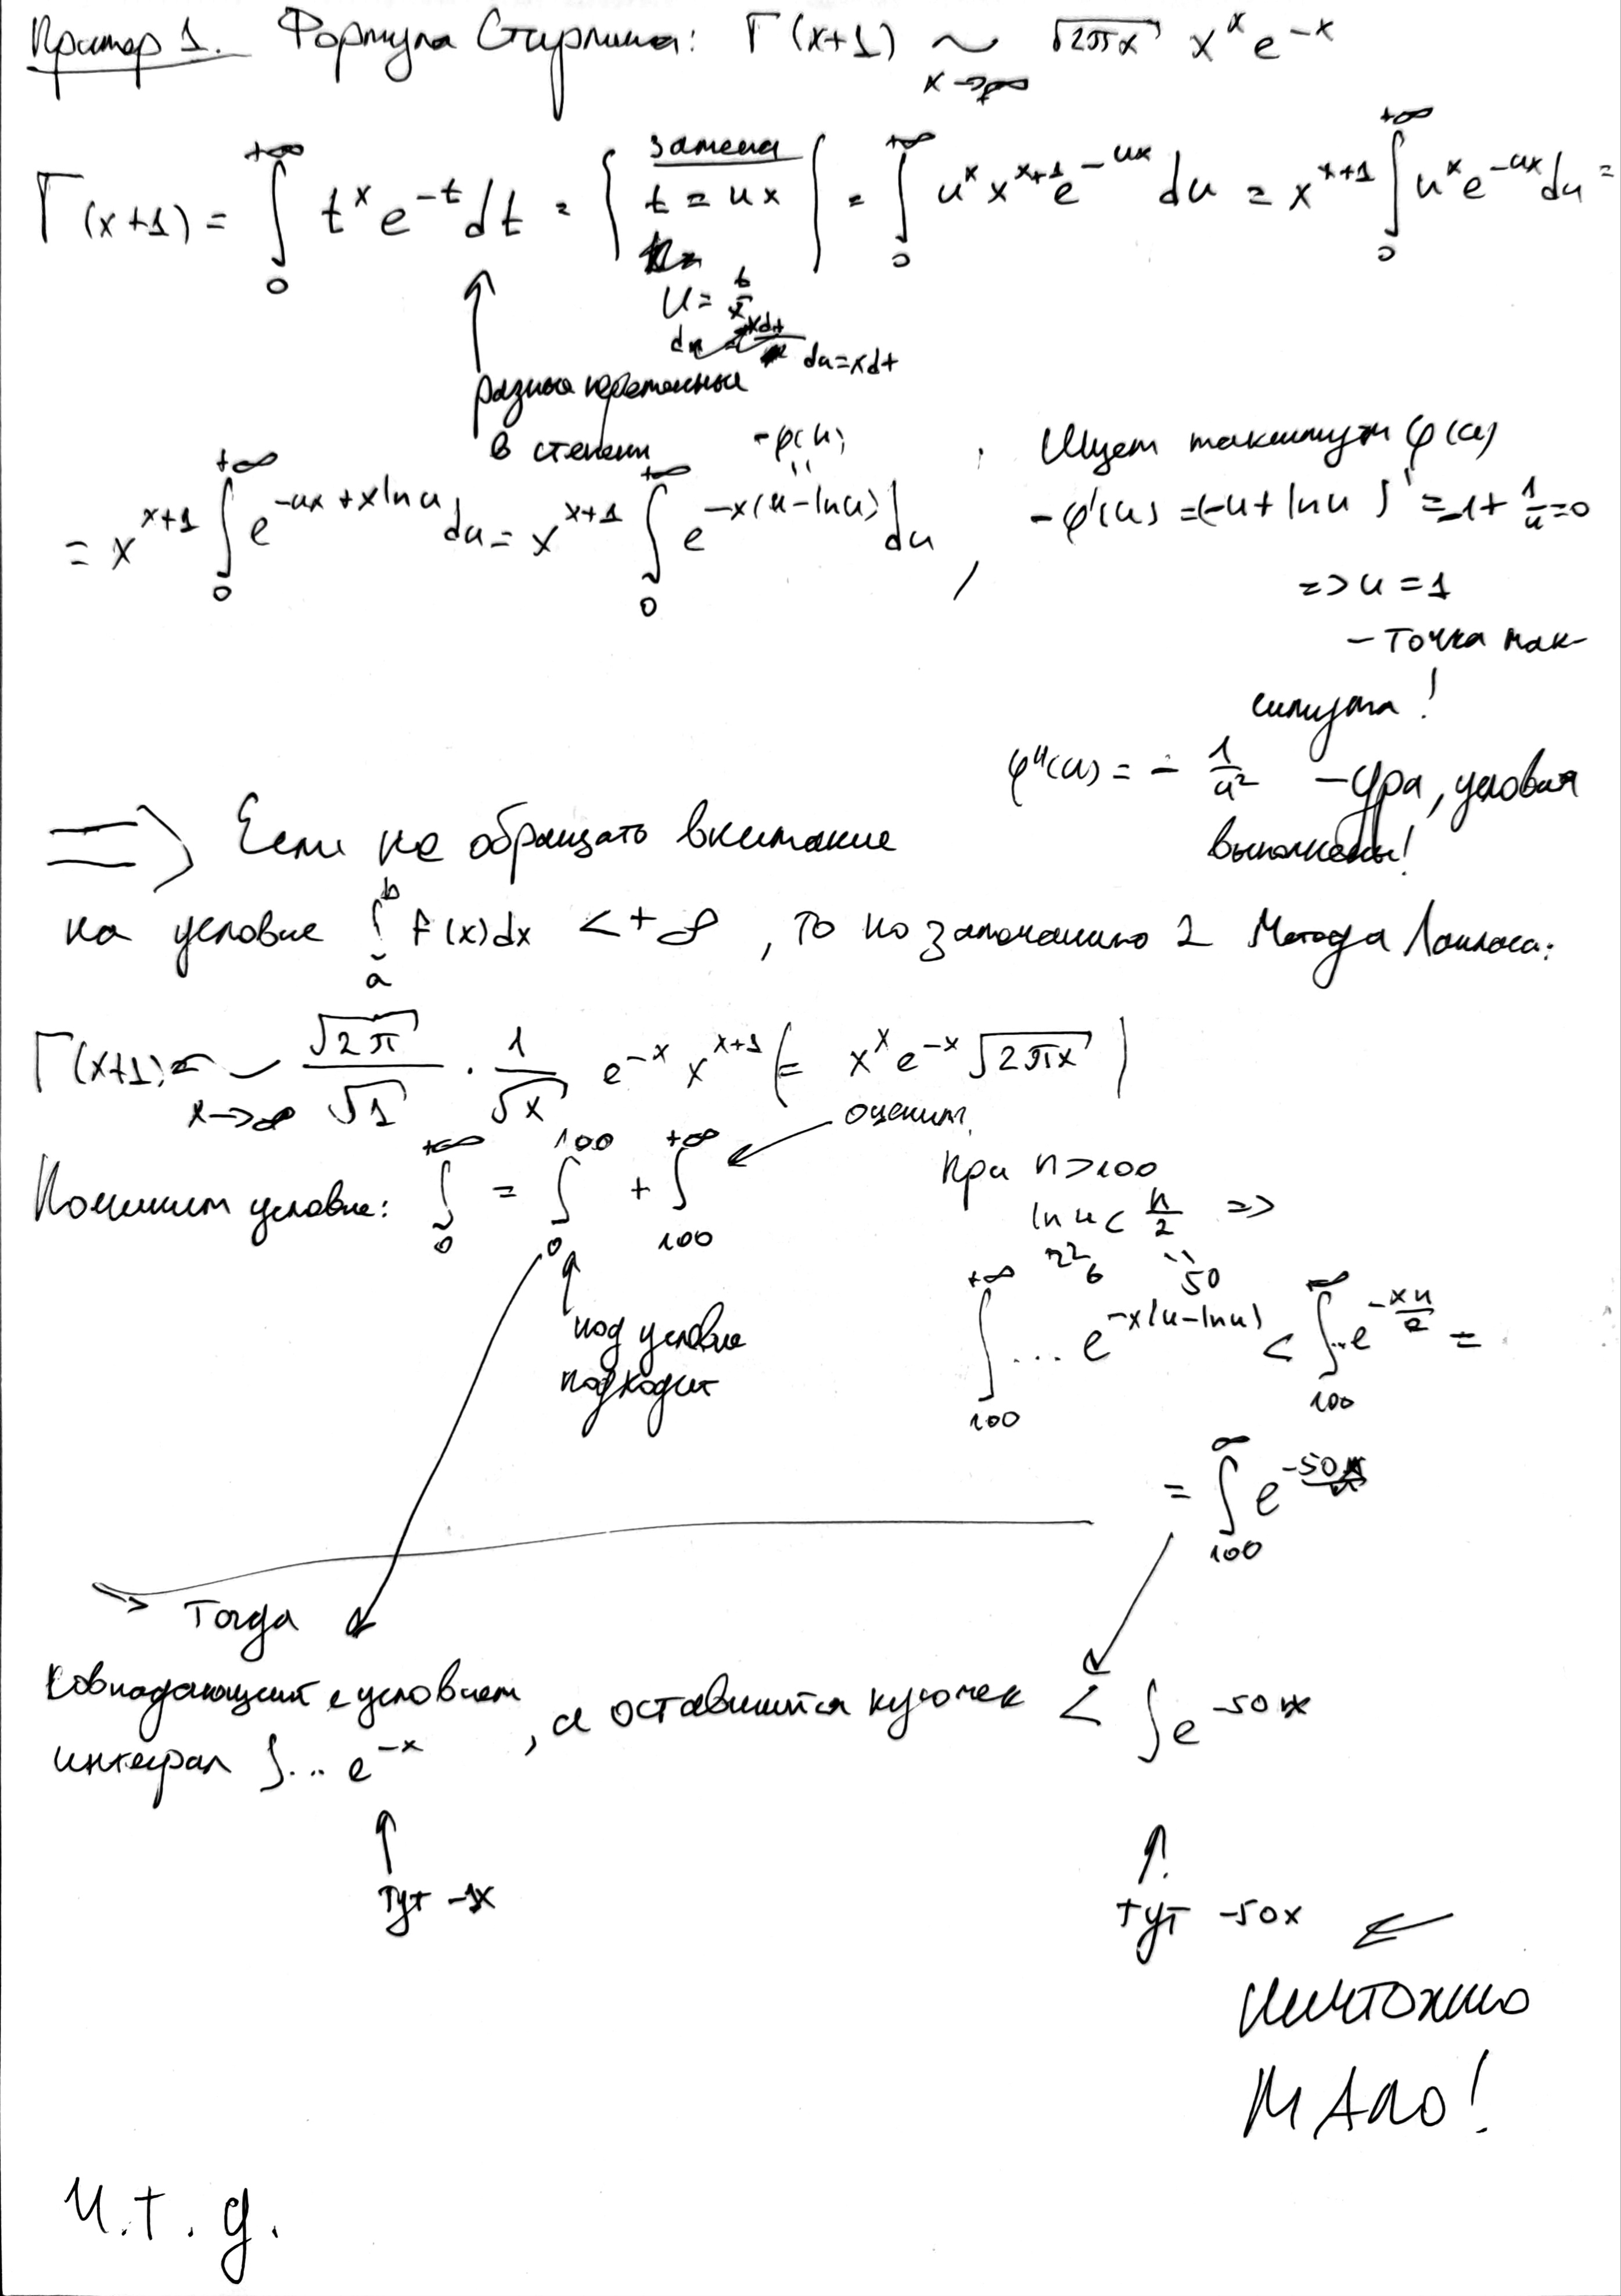 Пример 1. Формула Стирлинга: Γ(x+1) ~ √2πx x^x e^-x
x→+∞
Γ(x+1) = ∫_0^+∞ t^x e^-t dt = { замена t = ux | = ∫_0^+∞ u^x x^x+1 e^-ux du = x^x+1 ∫_0^+∞ u^x e^-ux du =
u = t/x
du = xdt
разные переменные
в степени
-φ(u)
= x^x+1 ∫_0^+∞ e^-ux+xlnu du = x^x+1 ∫_0^+∞ e^-x(u-lnu) du ,
Ищем максимум φ(u)
-φ'(u) = (-u + ln u)' = -1 + 1/u = 0
=> u = 1
- точка мак-
симума!
φ''(u) = - 1/u² - Ура, условия
выполнены!
=> Если не обращать внимание
на условие ∫_a^b f(x)dx < +∞, то по замечанию 2 Метода Лапласа:
Γ(x+1) ~ √2π/√1 · 1/√x e^-x x^x+1 (= x^x e^-x √2πx)
x→∞
Починим условие: ∫_0^+∞ = ∫_0^100 + ∫_100^+∞ ← оценим
под условие
подходит
При n>100
ln u < u/2 =>
6 50
∫_100^+∞ ... e^-x(u-lnu) < ∫_100^∞ ..e^-xu/2 =
= ∫_100^∞ e^-50x
Тогда
совпадающий с условием
интеграл ∫... e^-x
, а оставшийся кусочек < ∫ e^-50x
тут -1x
тут -50x
ничтожно
МАЛО!
ч.т.д.